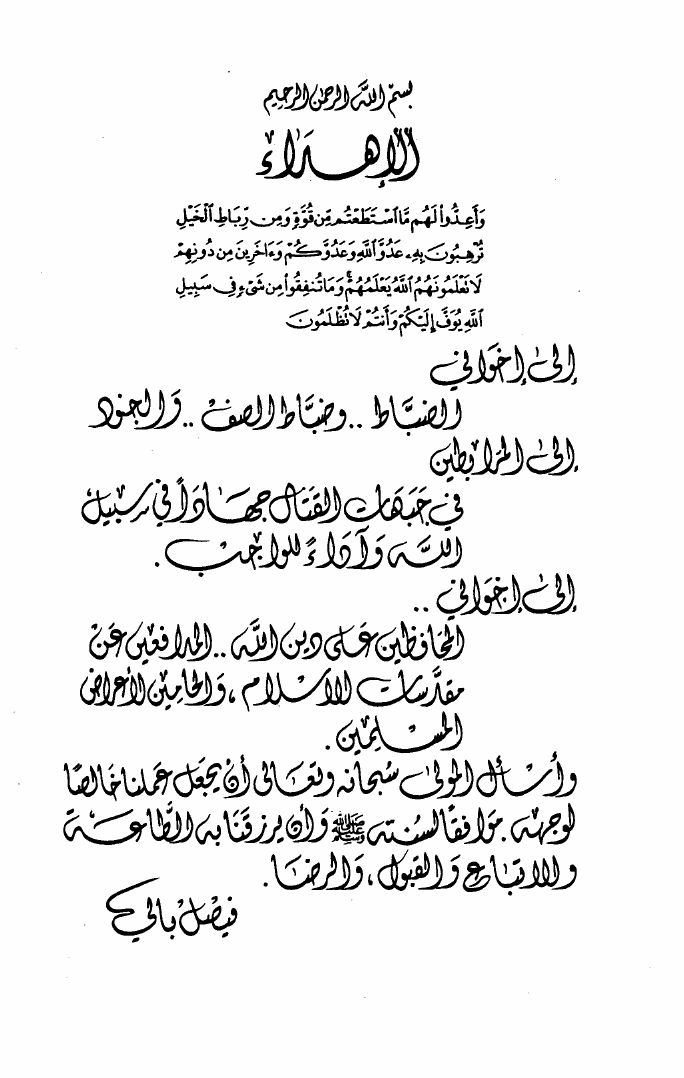 بسم الله الرحمن الرحيم
الإهداء
وَأَعِدُّوا۟ لَهُم مَّا ٱسۡتَطَعۡتُم مِّن قُوَّةٖ وَمِن رِّبَاطِ ٱلۡخَيۡلِ
تُرۡهِبُونَ بِهِۦ عَدُوَّ ٱللَّهِ وَعَدُوَّكُمۡ وَءَاخَرِينَ مِن دُونِهِمۡ
لَا تَعۡلَمُونَهُمُ ٱللَّهُ يَعۡلَمُهُمۡۚ وَمَا تُنفِقُوا۟ مِن شَيۡءٖ فِي سَبِيلِ
ٱللَّهِ يُوَفَّ إِلَيۡكُمۡ وَأَنتُمۡ لَا تُظۡلَمُونَ
إلى إخواني
الضبَّاط .. وضبَّاط الصف .. والجنود
إلى المرابطين
في جبهات القتال جهاداً في سبيل
الله وآداءً للواجب .
إلى إخواني ..
المحافظين على دين الله .. المدافعين عن
مقدَّسات الإسلام ، والحامين لأعراض
المسلمين .
وأسأل المولى سُبحانه وتعالى أن يجعل عملنا خالصًا
لوجهه موافقًا لسنته ﷺ وأن يرزقنا به الطَّاعة
والاتباع والقبول ، والرضا .
فيصل بالي